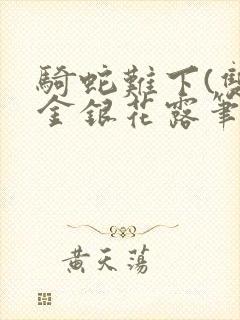 騎蛇難下(雙
金銀花露筆
黃天蕩